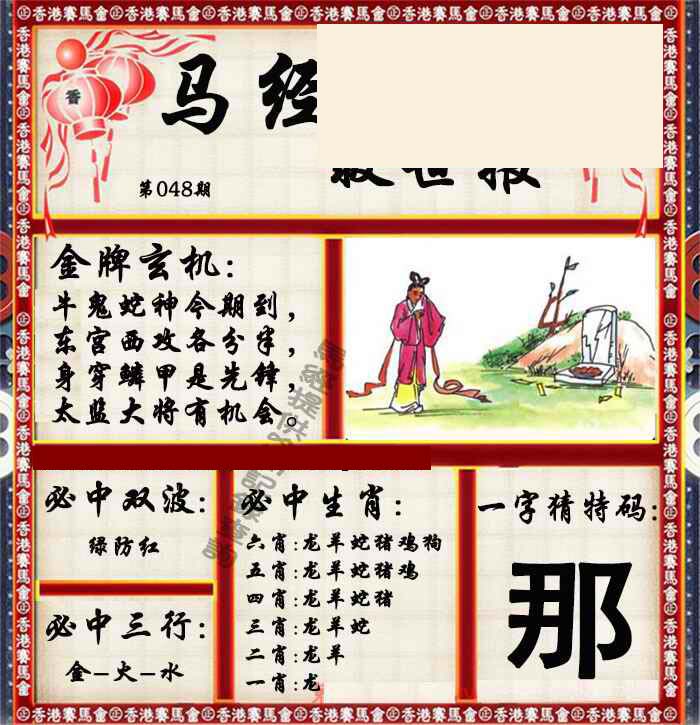 香港賽馬會
马经
救世报
第048期
金牌玄机:
牛鬼蛇神今期到，
东宫西攻各分半，
身穿鳞甲是先锋，
太监大将有机会。
必中双波:
绿防红
必中三行:
金–火–水
必中生肖:
六肖:龙羊蛇猪鸡狗
五肖:龙羊蛇猪鸡
四肖:龙羊蛇猪
三肖:龙羊蛇
二肖:龙羊
一肖:龙
一字猜特码:
那